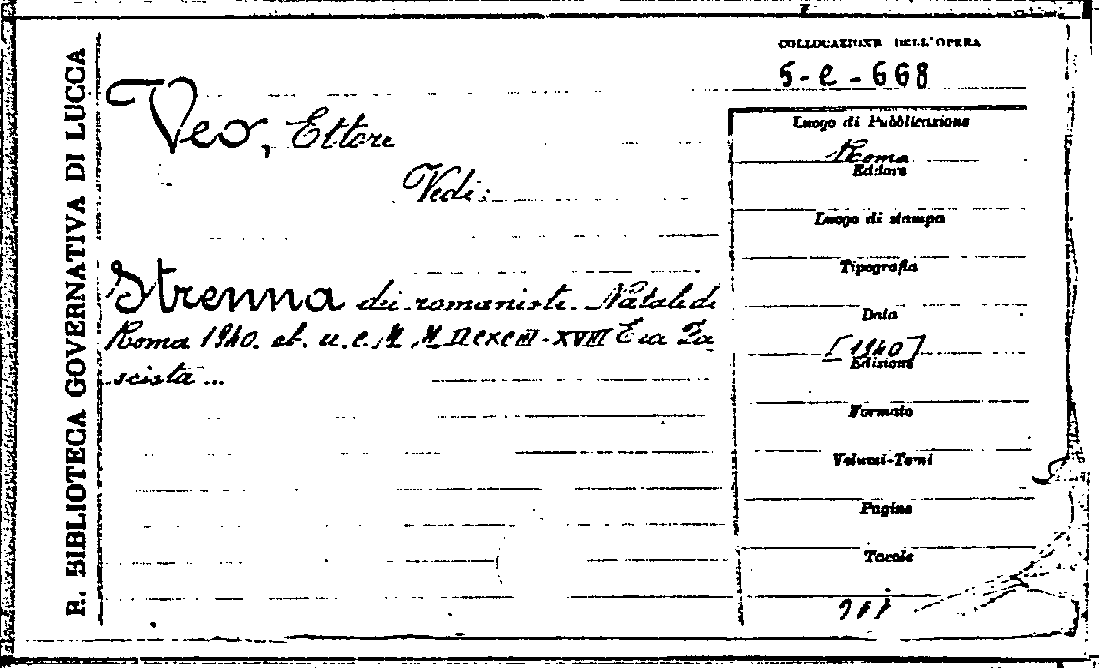 R. BIBLIOTECA GOVERNATIVA DI LUCCA
COLLOCAZIONE DELL'OPERA
5-e-668
Veo, Ettore
Vedi:
Strenna dei romanisti. Natale di
Roma 1940. ab. u. c. MMDCXCIII-XVIII Era Fa
scista...
Luogo di Pubblicazione
Roma
Editore
Luogo di stampa
Tipografia
Data
[1940]
Edizione
Formato
Volumi-Tomi
Pagine
Tavole